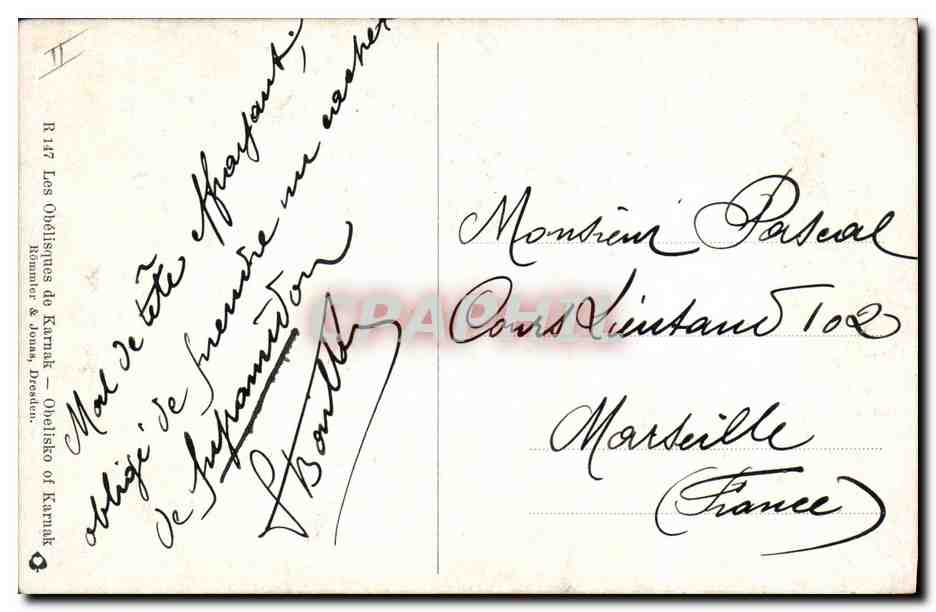 II
R 147 Les Obélisques de Karnak — Obelisko of Karnak
Römmler & Jonas, Dresden.
Mal de tête
obligé de prendre un cachet
de
Monsieur Pascal
Cours Lieutaud 102
Marseille
(France)
CPARAMA